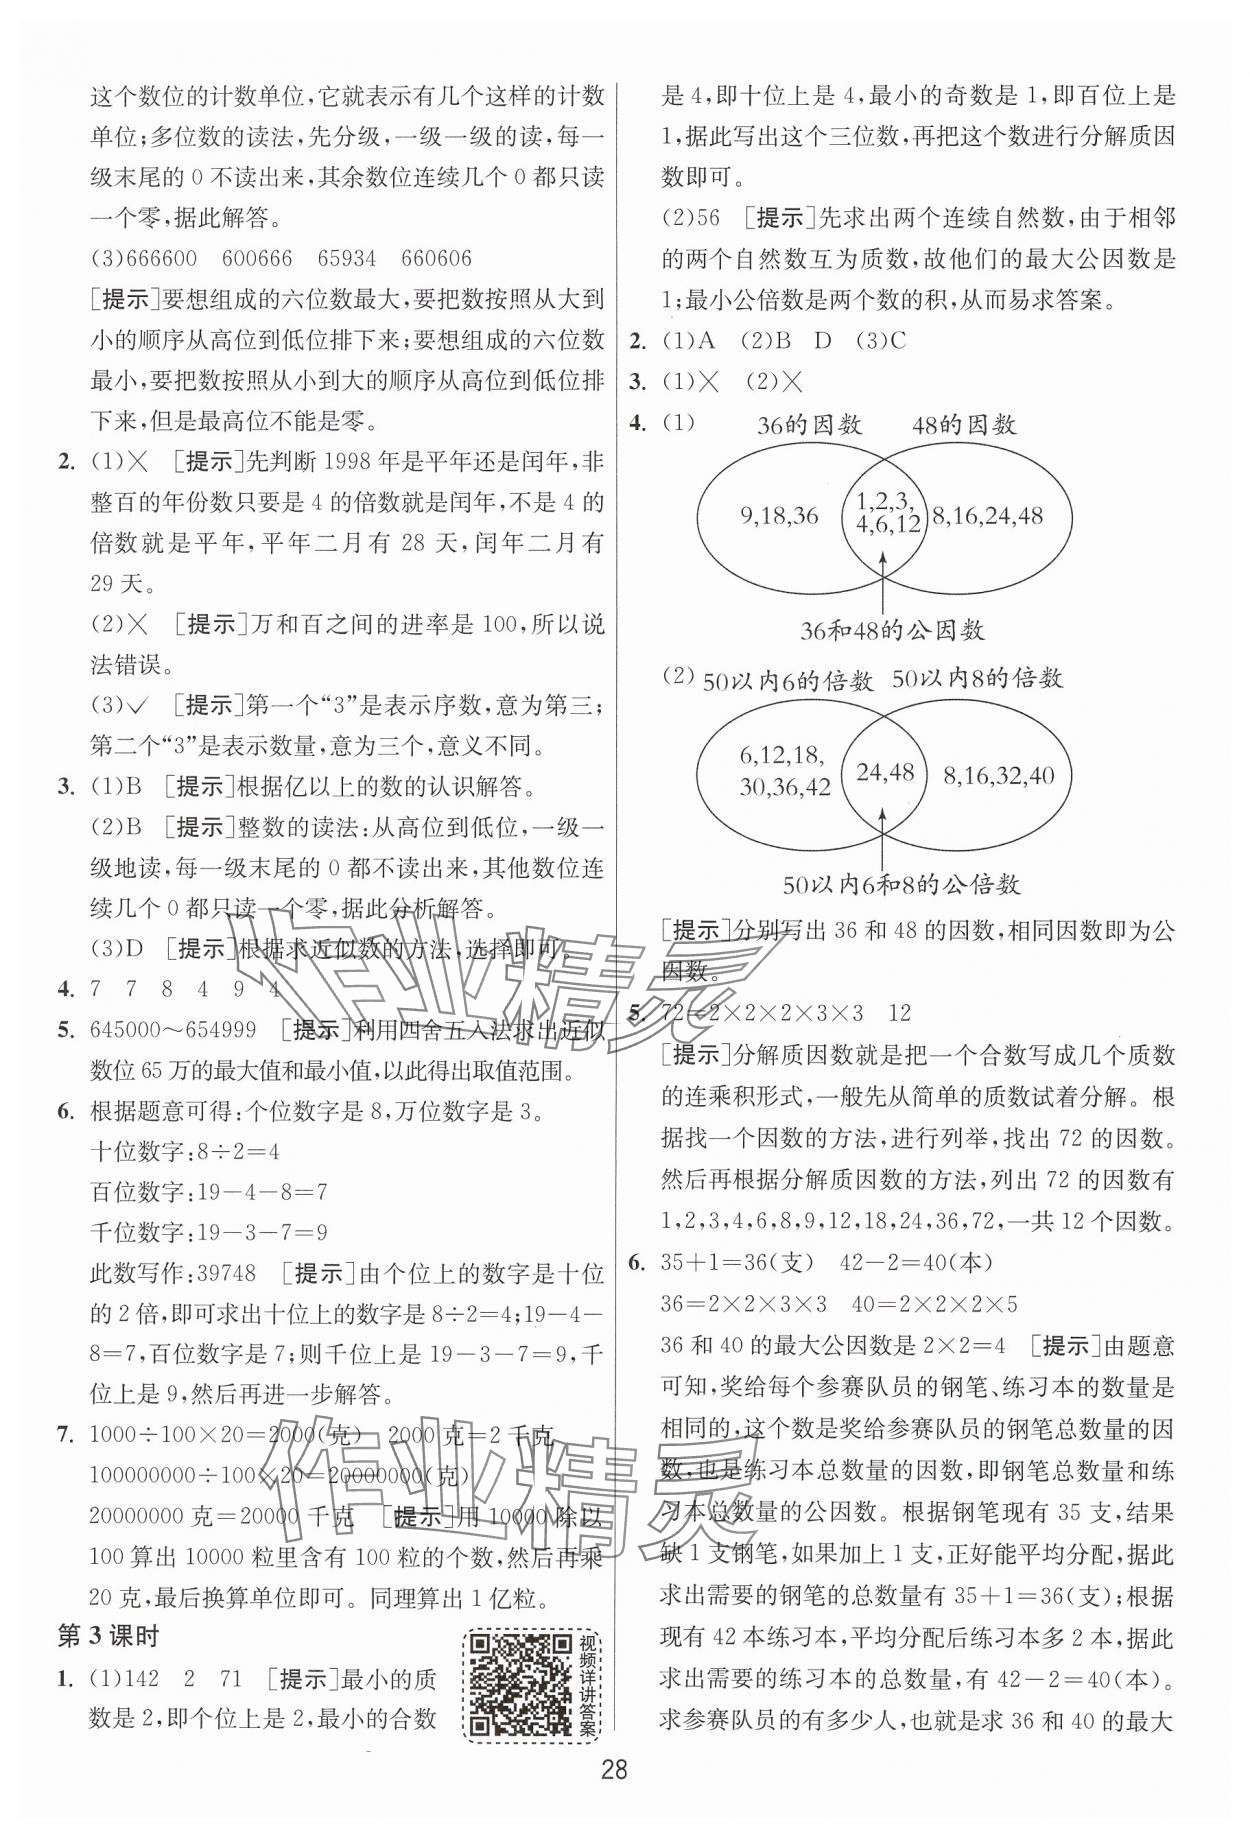 这个数位的计数单位,它就表示有几个这样的计数
单位;多位数的读法,先分级,一级一级的读,每一
级末尾的0不读出来,其余数位连续几个0都只读
一个零,据此解答。
(3)666600 600666 65934 660606
[提示]要想组成的六位数最大,要把数按照从大到
小的顺序从高位到低位排下来;要想组成的六位数
最小,要把数按照从小到大的顺序从高位到低位排
下来,但是最高位不能是零。
2. (1)× [提示]先判断1998年是平年还是闰年,非
整百的年份数只要是4的倍数就是闰年,不是4的
倍数就是平年,平年二月有28天,闰年二月有
29天。
(2)× [提示]万和百之间的进率是100,所以说
法错误。
(3)✓ [提示]第一个“3”是表示序数,意为第三;
第二个“3”是表示数量,意为三个,意义不同。
3. (1)B [提示]根据亿以上的数的认识解答。
(2)B [提示]整数的读法:从高位到低位,一级一
级地读,每一级末尾的0都不读出来,其他数位连
续几个0都只读一个零,据此分析解答。
(3)D [提示]根据求近似数的方法,选择即可。
4. 7 7 8 4 9 4
5. 645000~654999 [提示]利用四舍五入法求出近似
数位65万的最大值和最小值,以此得出取值范围。
6. 根据题意可得:个位数字是8,万位数字是3。
十位数字:8÷2=4
百位数字:19-4-8=7
千位数字:19-3-7=9
此数写作:39748 [提示]由个位上的数字是十位
的2倍,即可求出十位上的数字是8÷2=4;19-4-
8=7,百位数字是7;则千位上是19-3-7=9,千
位上是9,然后再进一步解答。
7. 1000÷100×20=2000(克) 2000克=2千克
100000000÷100×20=20000000(克)
20000000克=20000千克 [提示]用10000除以
100算出10000粒里含有100粒的个数,然后再乘
20克,最后换算单位即可。同理算出1亿粒。
第3课时
1. (1)142 2 71 [提示]最小的质
数是2,即个位上是2,最小的合数
视频详讲答案
是4,即十位上是4,最小的奇数是1,即百位上是
1,据此写出这个三位数,再把这个数进行分解质因
数即可。
(2)56 [提示]先求出两个连续自然数,由于相邻
的两个自然数互为质数,故他们的最大公因数是
1;最小公倍数是两个数的积,从而易求答案。
2. (1)A (2)B D (3)C
3. (1)× (2)×
4. (1) 36的因数 48的因数
9,18,36 1,2,3, 8,16,24,48
4,6,12
36和48的公因数
(2) 50以内6的倍数 50以内8的倍数
6,12,18, 24,48 8,16,32,40
30,36,42
50以内6和8的公倍数
[提示]分别写出36和48的因数,相同因数即为公
因数。
5. 72=2×2×2×3×3 12
[提示]分解质因数就是把一个合数写成几个质数
的连乘积形式,一般先从简单的质数试着分解。根
据找一个因数的方法,进行列举,找出72的因数。
然后再根据分解质因数的方法,列出72的因数有
1,2,3,4,6,8,9,12,18,24,36,72,一共12个因数。
6. 35+1=36(支) 42-2=40(本)
36=2×2×3×3 40=2×2×2×5
36和40的最大公因数是2×2=4 [提示]由题意
可知,奖给每个参赛队员的钢笔、练习本的数量是
相同的,这个数是奖给参赛队员的钢笔总数量的因
数,也是练习本总数量的因数,即钢笔总数量和练
习本总数量的公因数。根据钢笔现有35支,结果
缺1支钢笔,如果加上1支,正好能平均分配,据此
求出需要的钢笔的总数量有35+1=36(支);根据
现有42本练习本,平均分配后练习本多2本,据此
求出需要的练习本的总数量,有42-2=40(本)。
求参赛队员的有多少人,也就是求36和40的最大
28
作业精灵
作业精灵